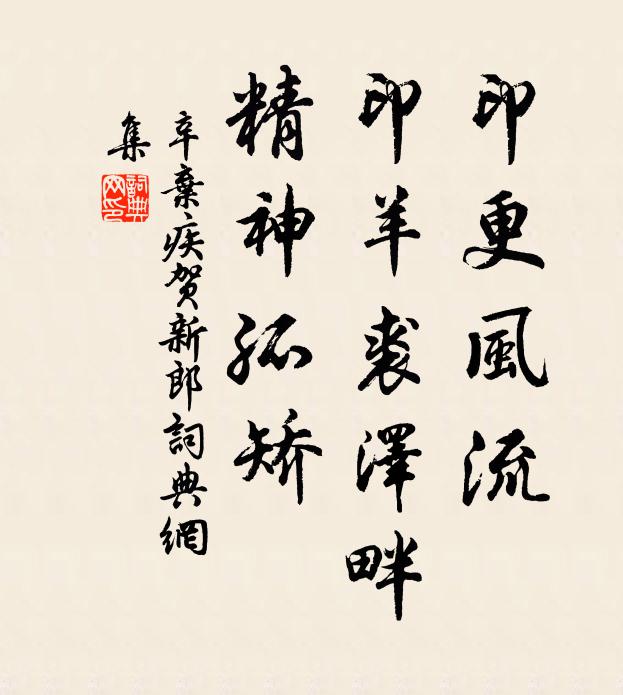 印更風流
印羊裘澤畔
精神孤矫
辛棄疾賀新郎詞典網
集
詞典
网印